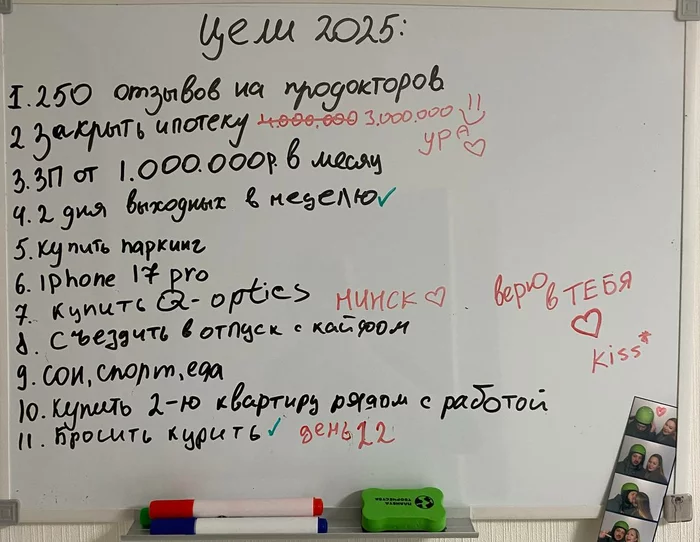 Цели 2025:
1. 250 отзывов на продокторов
2 Закрыть ипотеку 4.000.000 3.000.000 !!
УРА
3. ЗП от 1.000.000р. в месяц
4. 2 дня выходных в неделю ✓
5. Купить паркинг
6. Iphone 17 pro
7. Купить Q-optics
8. Съездить в отпуск с кайфом
МИНСК ♡
верю в ТЕБЯ
♡
kiss*
9. сон, спорт, еда
10. Купить 2-ю квартиру рядом с работой
11. Бросить курить ✓ день 12
ПЛАНЕТА
ТВОРЧЕСТВА